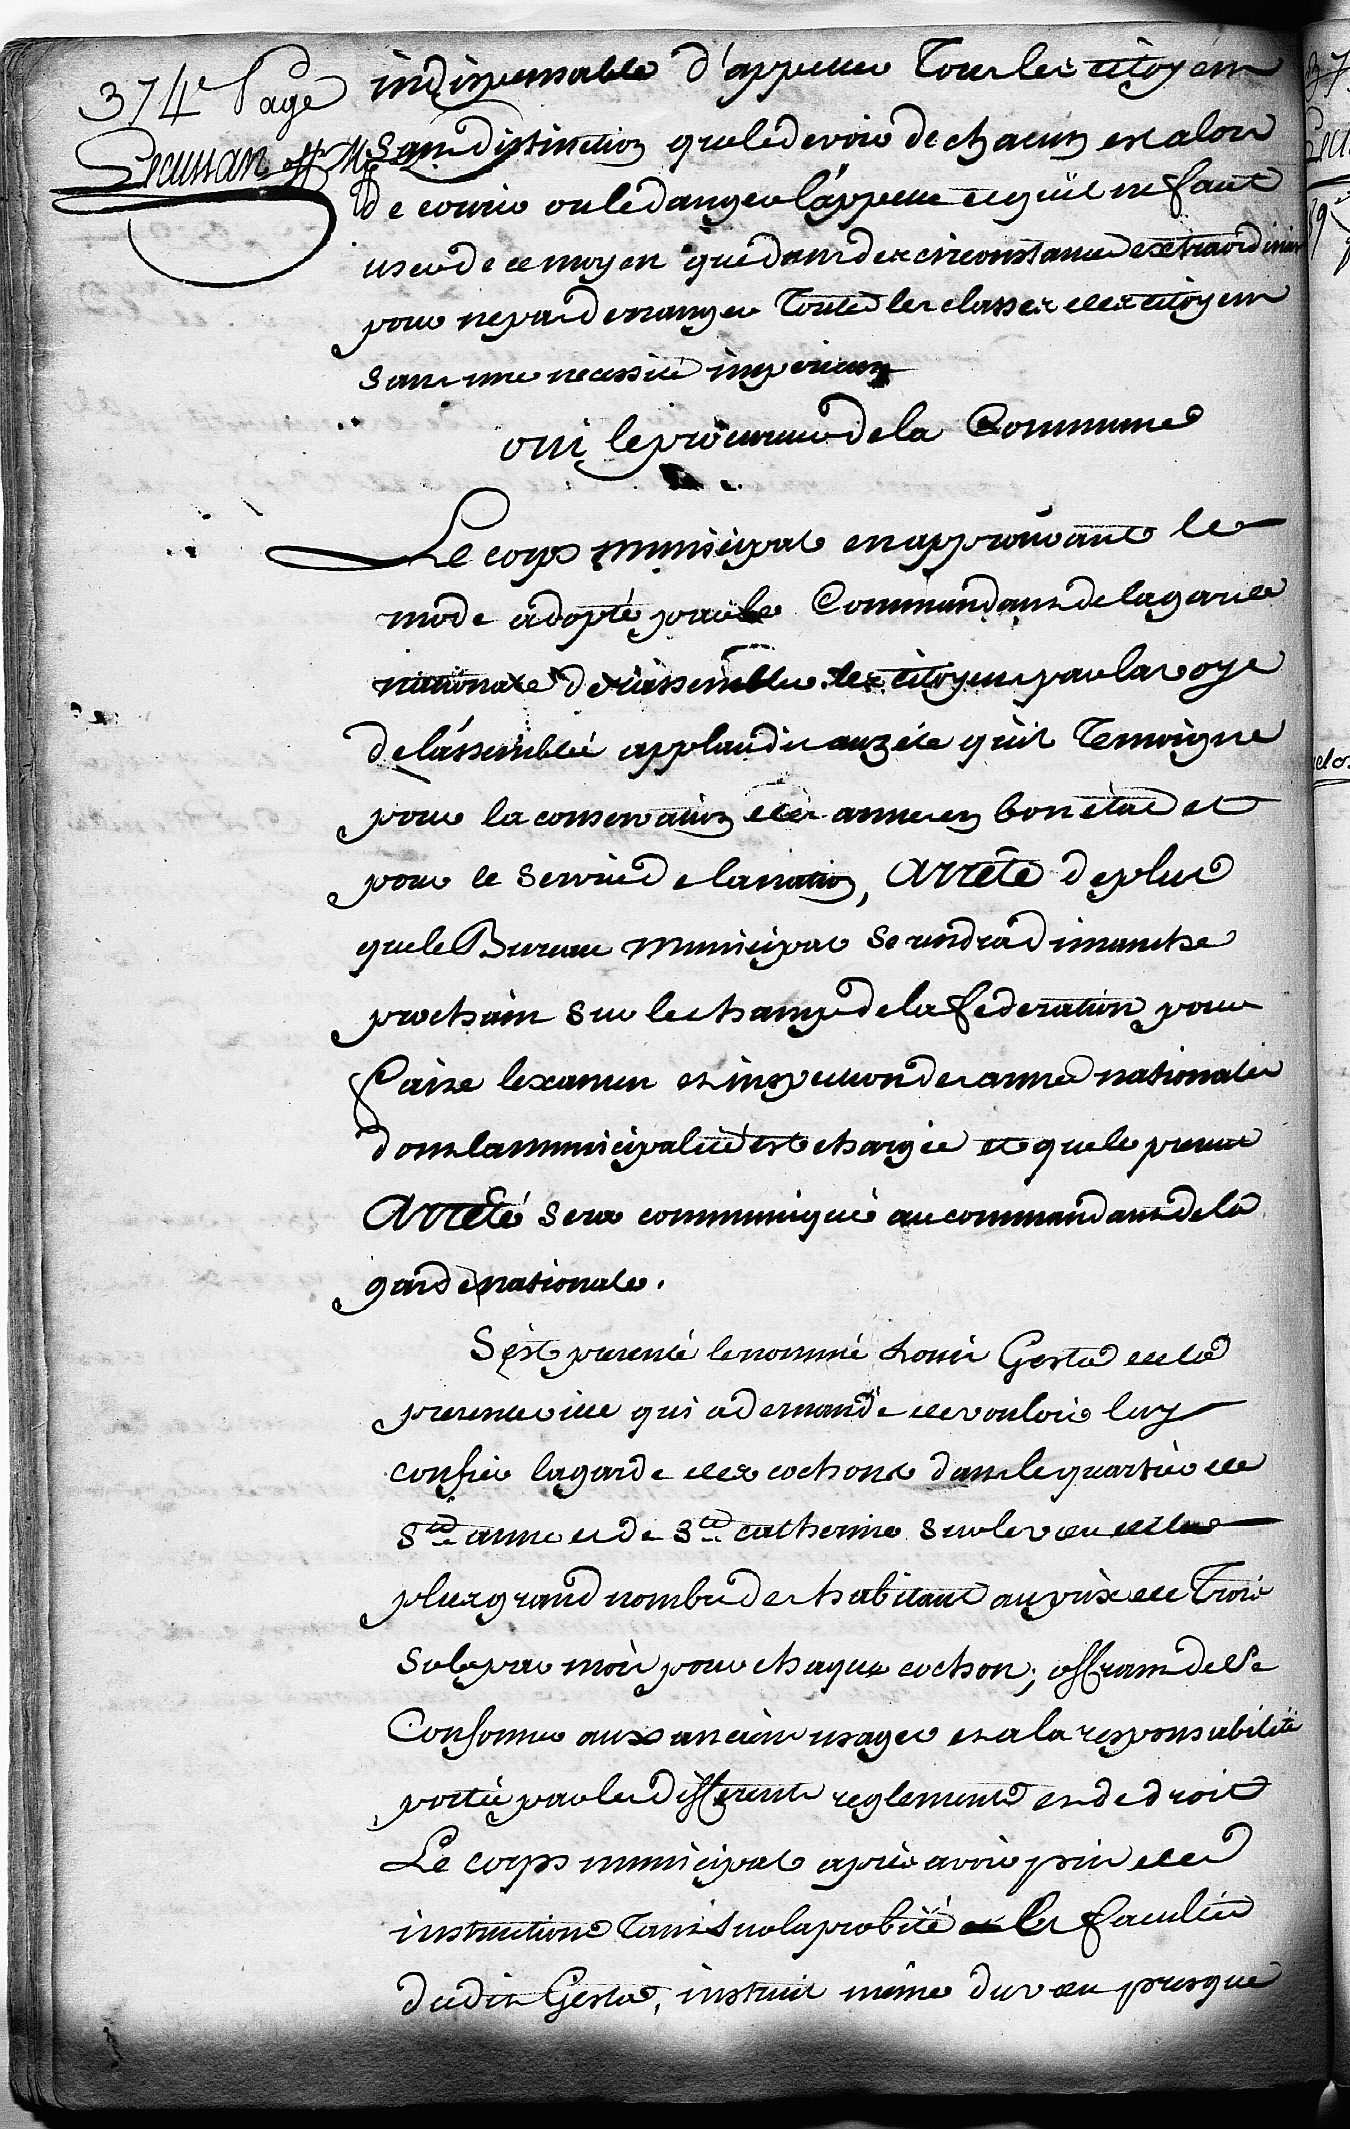 374e Page
Lecussan off. Mpal
indispensable d'appeller Tous les citoyens
sans distinction que le devoir de chacun est alors
de courir ou le danger l'appelle et qu'il ne faut
user de ce moyen que dans des circonstances extraordinaires
pour ne pas deranger Toutes les classes des citoyens
sans une necessité imperieuse
oui le procureur de la Commune
Le corps municipal en approuvant le
mode adopté par le Commandant de la garde
nationale de rassembler les citoyens par la voye
de l'assemblée applaudit au zele qu'il Temoigne
pour la conservation des armes en bon état et
pour le service de la nation, Arrête de plus
que le Bureau municipal se rendra dimanche
prochain sur le champ de la federation pour
faire l'examen et inspection des armes nationales
dont la municipalité est chargée et que le present
Arrêté sera communiqué au commandant de la
garde nationale.
S'est presenté le nommé Louis Gesta de la
presente ville qui a demandé de vouloir luy
confier la garde des cochons dans le quartier de
Ste anne et de Ste catherine sur le vœu du
plus grand nombre des habitants au prix de Trois
sols par mois pour chaque cochon; offrant de se
Conformer aux anciens usages et a la responsabilité
portée par les differents reglements et de droit
Le corps municipal après avoir pris des
instructions Tant sur la probité les facultés
dudit Gesta, instruit même du vœu presque